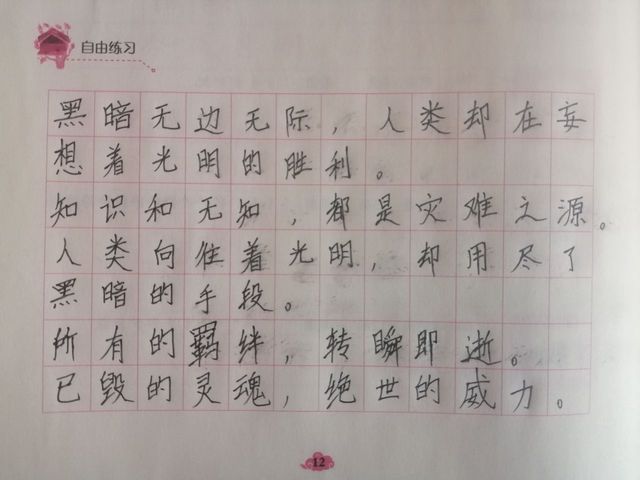 自由练习
黑暗无边无际，人类却在妄
想着光明的胜利。
知识和无知，都是灾难之源。
人类向往着光明，却用尽了
黑暗的手段。
所有的羁绊，转瞬即逝。
已毁的灵魂，绝世的威力。
12